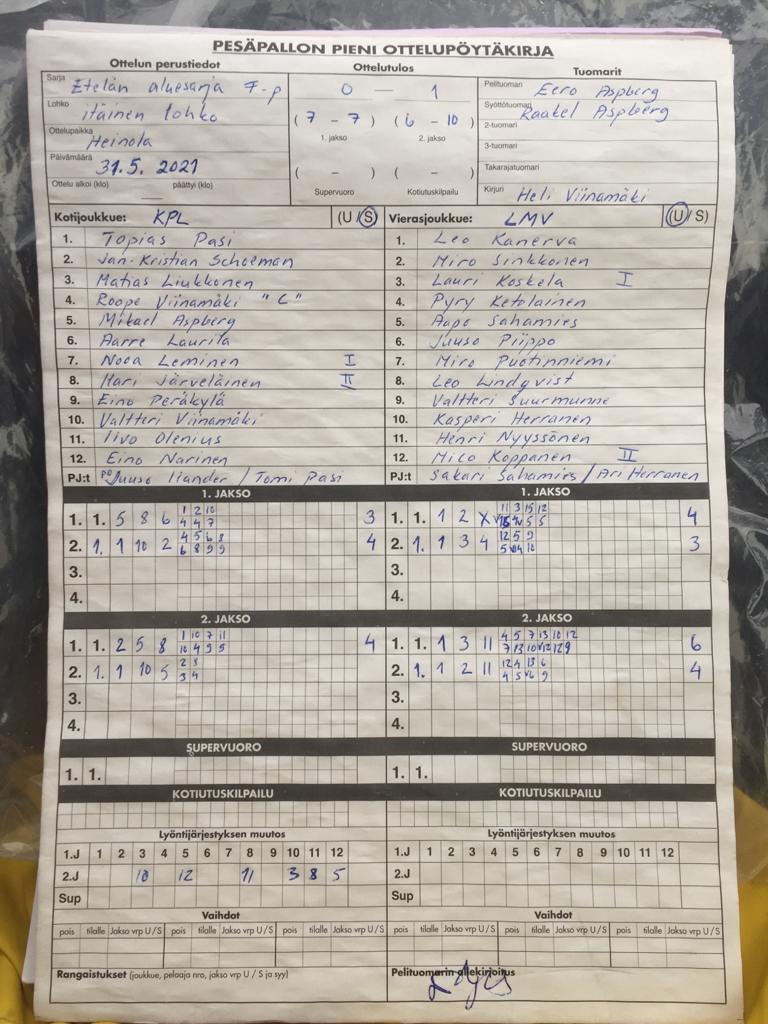 PESÄPALLON PIENI OTTELUPÖYTÄKIRJA
Ottelun perustiedot
Sarja Etelän aluesarja F-p
Lohko itäinen lohko
Ottelupaikka Heinola
Päivämäärä 31.5. 2021
Ottelu alkoi (klo) päättyi (klo)
Ottelutulos
0 — 1
( 7 - 7 ) ( 6 - 10 )
1. jakso 2. jakso
( - ) ( - )
Supervuoro Kotiutuskilpailu
Tuomarit
Pelituomari Eero Aspberg
Syöttötuomari Raakel Aspberg
2-tuomari
3-tuomari
Takarajatuomari
Kirjuri Heli Viinamäki
Kotijoukkue: KPL (U / S)
1. Topias Pasi
2. Jan-Kristian Schoeman
3. Matias Liukkonen
4. Roope Viinamäki "C"
5. Mikael Aspberg
6. Aarre Laurila
7. Nooa Leminen I
8. Hari Järveläinen II
9. Eino Peräkylä
10. Valtteri Viinamäki
11. Iivo Olenius
12. Eino Narinen
PJ:t Juuso Hander / Tomi Pasi
Vierasjoukkue: LMV (U / S)
1. Leo Kanerva
2. Miro Sinkkonen
3. Lauri Koskela I
4. Pyry Ketolainen
5. Aapo Sahamies
6. Juuso Piippo
7. Miro Puotinniemi
8. Leo Lindqvist
9. Valtteri Suurmunne
10. Kasperi Herranen
11. Henri Nyyssönen
12. Mico Koppanen II
PJ:t Sakari Sahamies / Ari Herranen
1. JAKSO
1. 1. 5 8 6 1 2 10 3
4 4 7
2. 1. 1 10 2 4 5 6 8 4
6 8 9 9
3.
4.
1. JAKSO
1. 1. 1 2 X 11 3 15 12 4
5 5
2. 1. 1 3 4 12 5 9 3
3.
4.
2. JAKSO
1. 1. 2 5 8 1 10 7 11 4
10 4 9 5
2. 1. 1 10 5 2 8
3 4
3.
4.
2. JAKSO
1. 1. 1 3 11 4 5 7 13 10 12 6
2. 1. 1 2 11 12 4 13 6 4
4 5 V6 9
3.
4.
SUPERVUORO
1. 1.
SUPERVUORO
1. 1.
KOTIUTUSKILPAILU
KOTIUTUSKILPAILU
Lyöntijärjestyksen muutos
1.J 1 2 3 4 5 6 7 8 9 10 11 12
2.J 10 12 11 3 8 5
Sup
Lyöntijärjestyksen muutos
1.J 1 2 3 4 5 6 7 8 9 10 11 12
2.J
Sup
Vaihdot
pois tilalle Jakso vrp U / S pois tilalle Jakso vrp U / S pois tilalle Jakso vrp U / S
Vaihdot
pois tilalle Jakso vrp U / S pois tilalle Jakso vrp U / S pois tilalle Jakso vrp U / S
Rangaistukset (joukkue, pelaaja nro, jakso vrp U / S ja syy)
Pelituomarin allekirjoitus